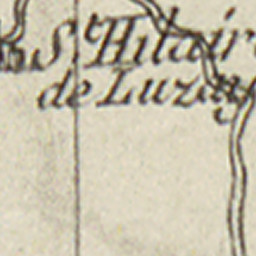 St. Hilaire
de Luzay